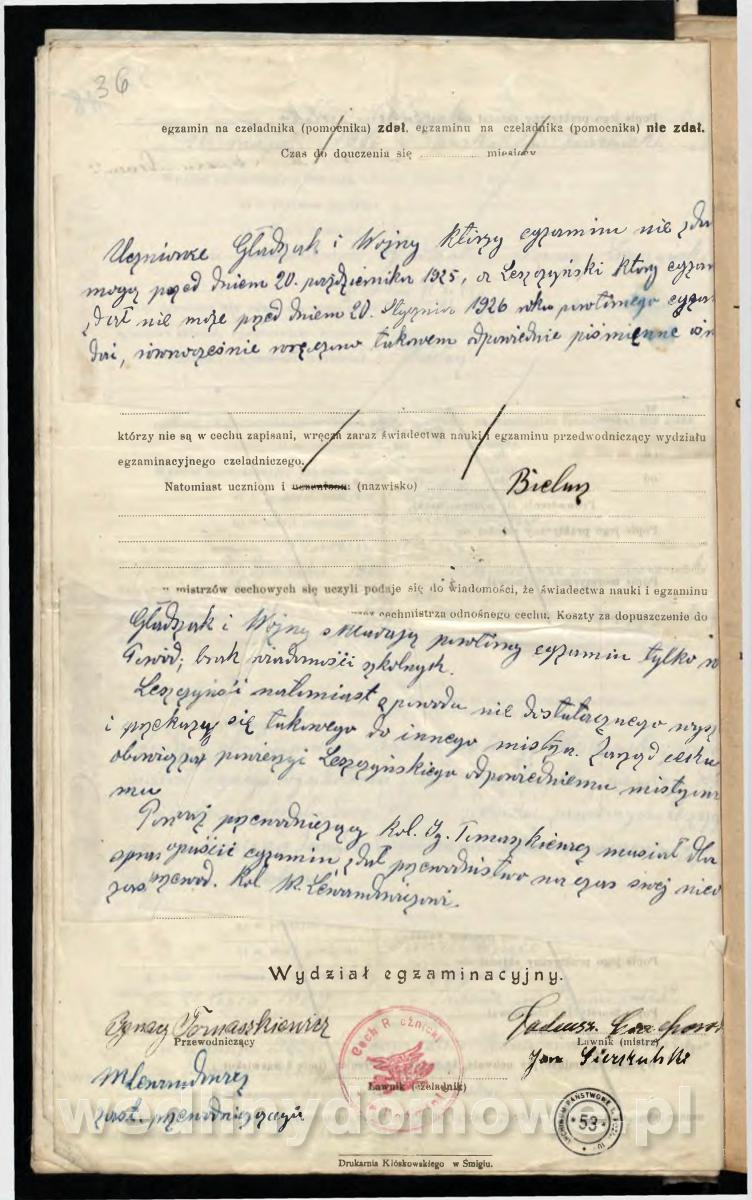 36
egzamin na czeladnika (pomocnika) zdał, egzaminu na czeladnika (pomocnika) nie zdał.
Czas do douczenia się miesięcy
Uczniowie Gładszak i Wojny którzy egzaminu nie zdal
mogą przed dniem 20. października 1925, a Leszczyński który egzam
zdał nie może przed dniem 20. Stycznia 1926 roku powtórnego egzam
równocześnie wręczono takowem odpowiednie piśmienne
którzy nie są w cechu zapisani, wręcza zaraz świadectwa nauki i egzaminu przedwodniczący wydziału
egzaminacyjnego czeladniczego.
Natomiast uczniom i uczenicom (nazwisko)
mistrzów cechowych się uczyli podaje się do wiadomości, że świadectwa nauki i egzaminu
Gładszak i Wojny składają powtórny egzamin tylko
cechmistrza odnośnego cechu. Koszty za dopuszczenie do
Powód; brak wiadomości szkolnych.
Leszczyński natomiast z powodu nie dostatecznego
i przekazuje się takowego do innego mistrza. Zarząd cechu
Leszczyńskiego odpowiedniemu mistrzowi
Ponieważ przewodniczący kol. Ig. Tomaszkiewicz musiał dla
spraw opuścić egzamin zdał przewodnistwo na czas swej nieo
przewod. Kol. W. Lewandowiczowi.
Wydział egzaminacyjny.
Ignacy Tomaszkiewicz
Przewodniczący
Tadeusz
Ławnik (mistrz)
Jan
Cech Rzeźnicki
Ławnik (czeladnik)
zast. przewodniczącego
53
wedlinydomowe.pl
Drukarnia Kłóskowskiego w Śmiglu.